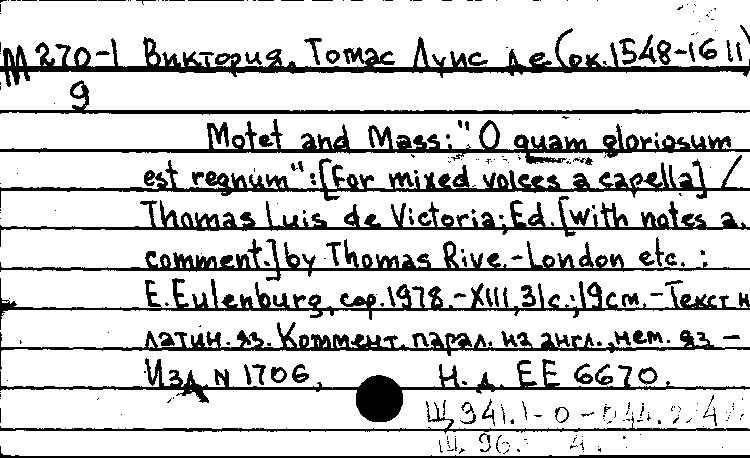 М 270-1 Виктория, Томас Луис де (ок. 1548-1611)
9
Motet and Mass: "O quam gloriosum
est regnum": [For mixed voices a capella] /
Thomas Luis de Victoria; Ed. [with notes a.
comment.] by Thomas Rive. - London etc. :
E. Eulenburg, cop. 1978. - XIII, 31 с.; 19 см. - Текст н
латин. яз. Коммент. парал. на англ., нем. яз. -
Изд. N 1706,
Н. д. EE 6670.
Щ 941.1-0
Щ 96.